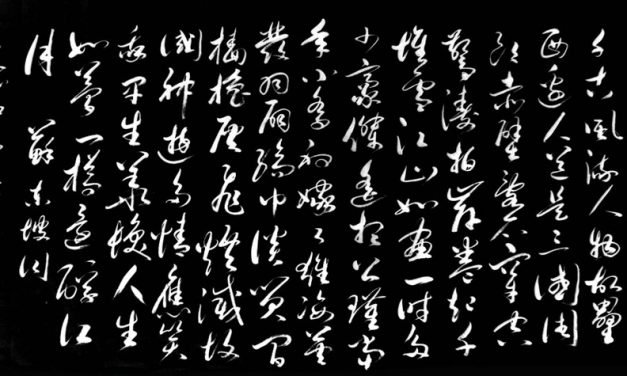 千古風流人物故壘
西邊人道是三國周
郎赤壁亂石穿空
驚濤拍岸卷起千
堆雪江山如畫一時多
少豪傑遙想公瑾當
年小喬初嫁了雄姿英
發羽扇綸巾談笑間
檣櫓灰飛煙滅故
國神遊多情應笑
我平生華髮人生
如夢一樽還酹江
月 蘇東坡詞